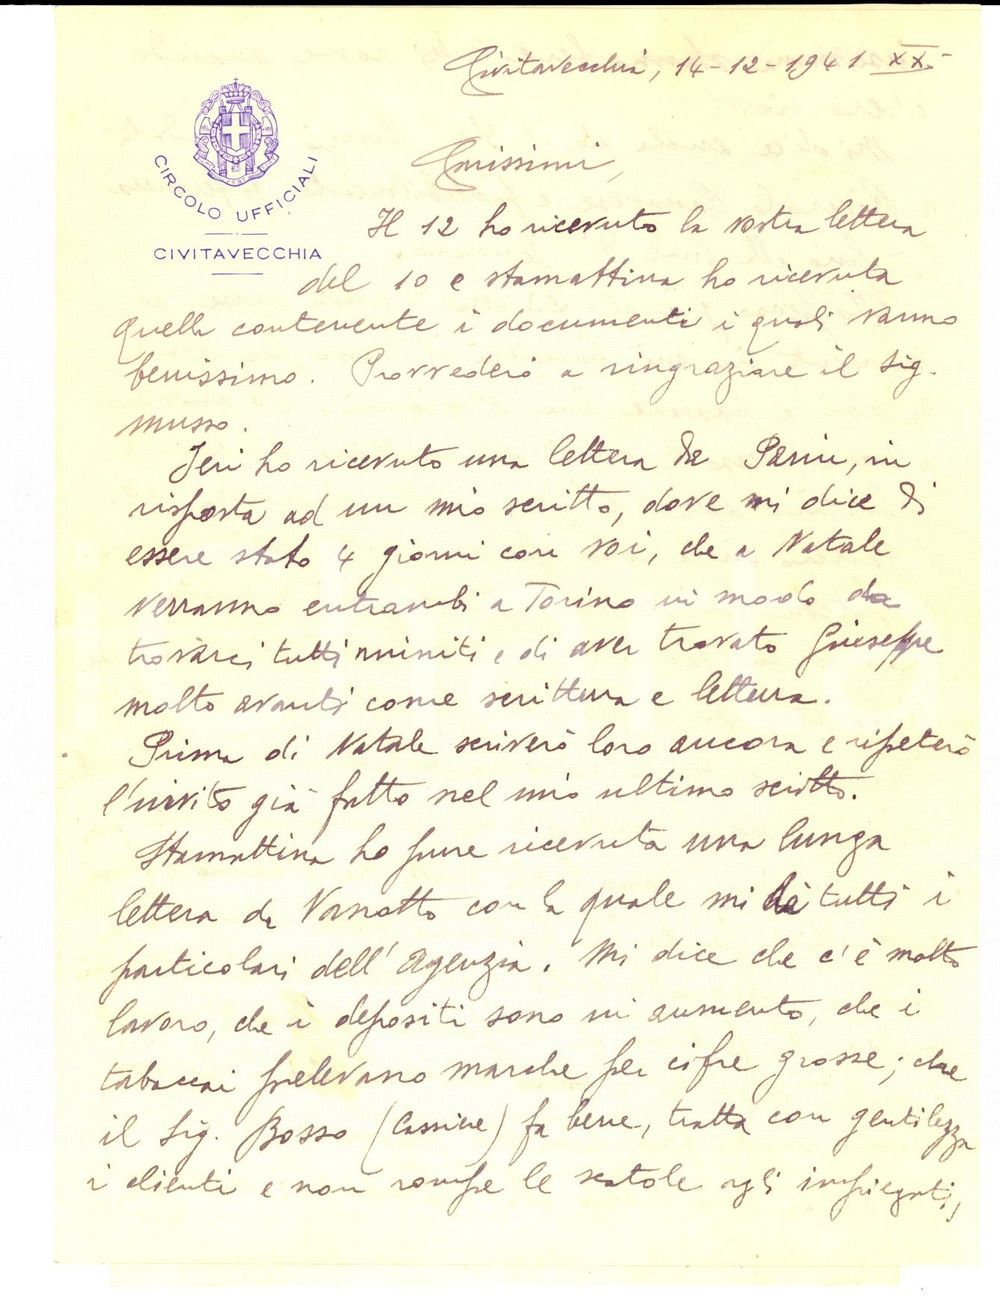 Civitavecchia, 14-12-1941 XX°
CIRCOLO UFFICIALI
CIVITAVECCHIA
Carissimi,
Il 12 ho ricevuto la vostra lettera
del 10 e stamattina ho ricevuta
quella contenente i documenti i quali vanno
benissimo. Provvederò a ringraziare il Sig.
Musso.
Ieri ho ricevuto una lettera da, in
risposta ad un mio scritto, dove mi dice di
essere stato 4 giorni con voi, che a Natale
verranno entrambi a Torino in modo da
trovarci tutti riuniti e di aver trovato Giuseppe
molto avanti come scrittura e lettura.
Prima di Natale scriverò loro ancora e ripeterò
l'invito già fatto nel mio ultimo scritto.
Stamattina ho pure ricevuta una lunga
lettera da Vanotto con la quale mi dà tutti i
particolari dell'Agenzia. Mi dice che c'è molto
lavoro, che i depositi sono in aumento, che i
tabaccai prelevano marche per cifre grosse; che
il Sig. Bosso (Cassiere) fa bene, tratta con gentilezza
i clienti e non rompe le scatole agli impiegati,